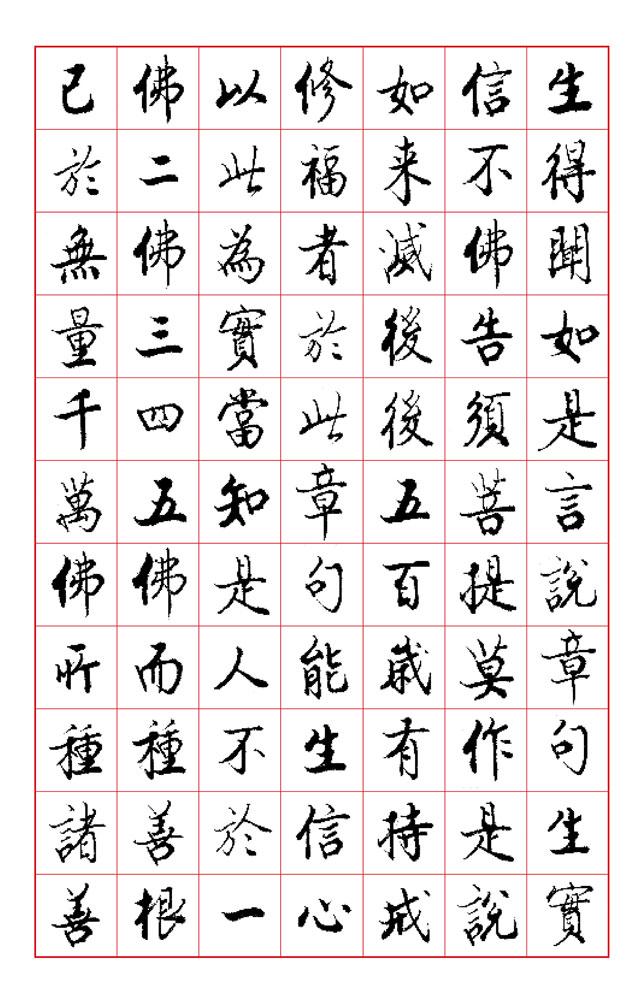 生得聞如是言說章句生實
信不佛告須菩提莫作是說
如来滅後後五百歲有持戒
修福者於此章句能生信心
以此為實當知是人不於一
佛二佛三四五佛而種善根
已於無量千萬佛所種諸善